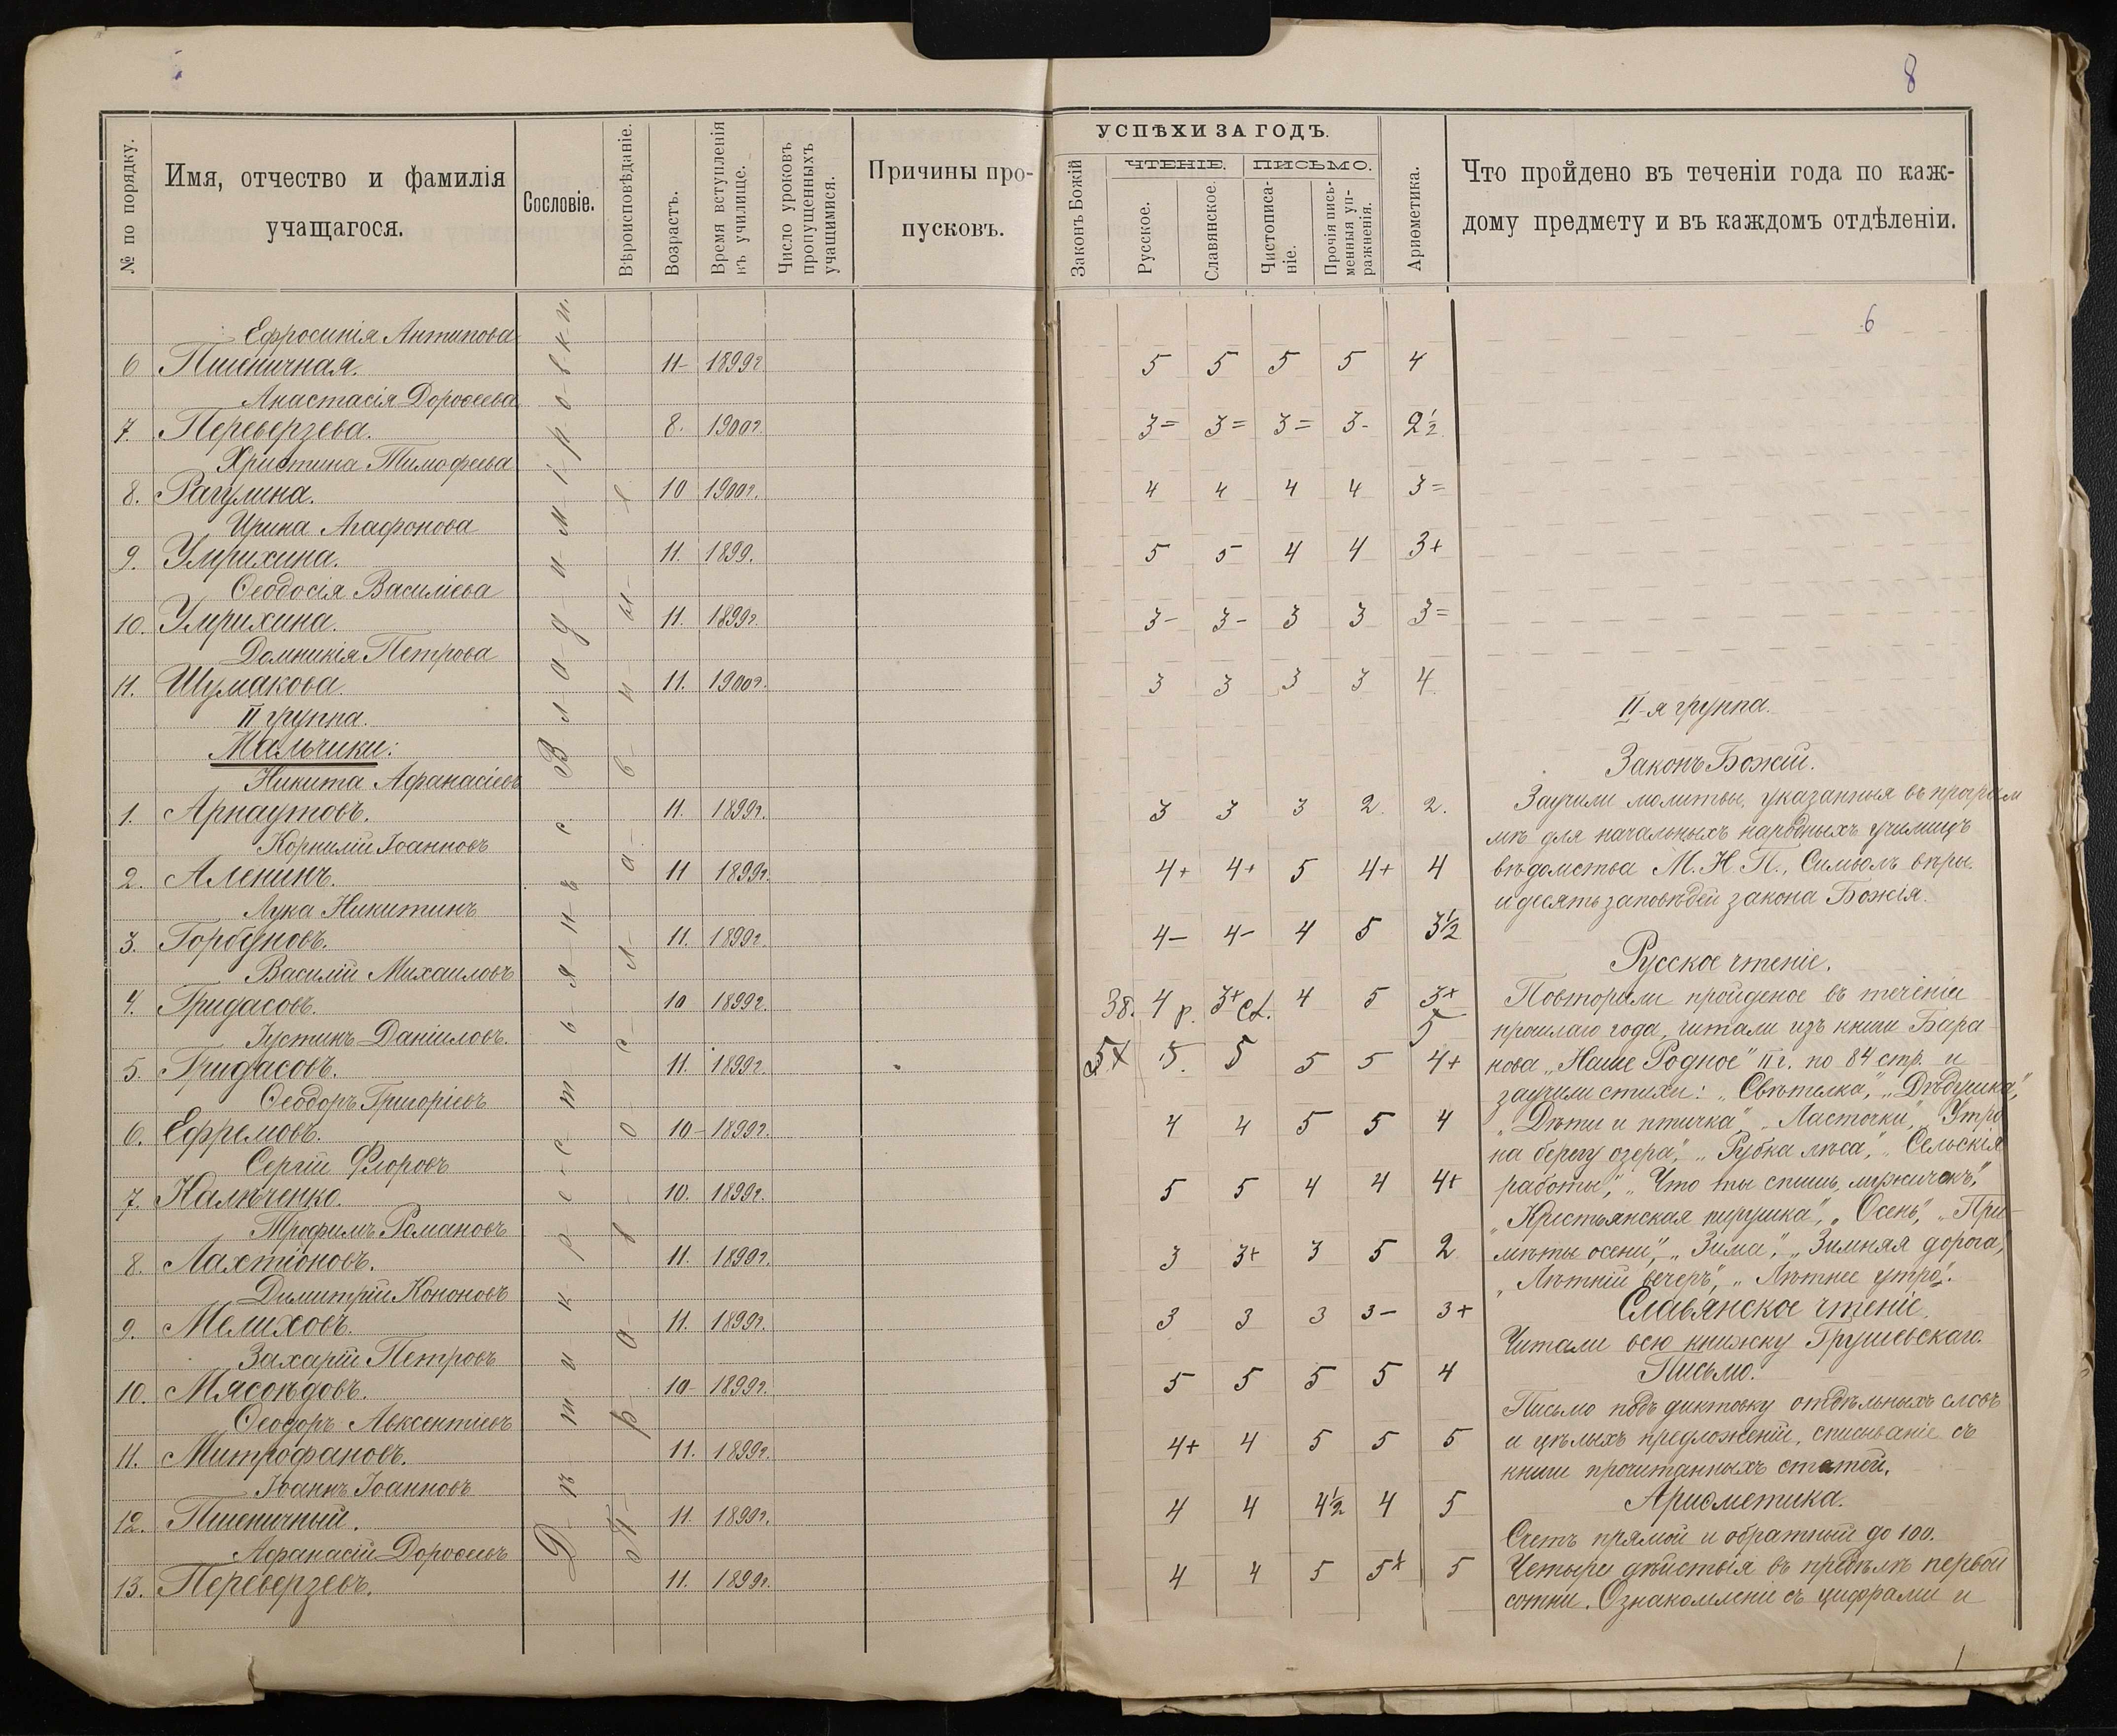 8
№ по порядку.
Имя, отчество и фамилія
учащагося.
Сословіе.
Вѣроисповѣданіе.
Возрастъ.
Время вступленія
въ училище.
Число уроковъ
пропущенныхъ
учащимися.
Причины про-
пусковъ.
УСПѢХИ ЗА ГОДЪ.
Законъ Божій
ЧТЕНІЕ.
ПИСЬМО.
Русское.
Славянское.
Чистописа-
ніе.
Прочія пись-
менныя уп-
ражненія.
Ариѳметика.
Что пройдено въ теченіи года по каж-
дому предмету и въ каждомъ отдѣленіи.
6
Ефросинія Антипова
6 Пшеничная. 11- 1899г 5 5 5 5 4
Анастасія Дороѳеева
7. Переверзева. 8. 1900г. 3= 3= 3= 3- 2½
Христина Тимофеева
8. Рагулина. 10 1900г. 4 4 4 4 3=
Ирина Агафонова
9. Умрихина. 11. 1899. 5 5 4 4 3+
Ѳеодосія Василіева
10. Умрихина. 11. 1899г. 3- 3- 3 3 3=
Домникія Петрова
11. Шумакова. 11. 1900г. 3 3 3 3 4
II группа.
Мальчики:
Никита Афанасіевъ
1. Арнаутовъ. 11. 1899г. 3 3 3 2. 2.
Корнилій Іоанновъ
2. Аленинъ. 11 1899г. 4+ 4+ 5 4+ 4
Лука Никитинъ
3. Горбуновъ. 11. 1899г. 4- 4- 4 5 3½
Василій Михаиловъ
4. Гридасовъ. 10 1899г. Зб. 4 р. 3+ сл. 4 5 3+
Іустинъ Даніиловъ. 5
5. Гридасовъ. 11. 1899г. 5+ 5. 5 5 5 4+
Ѳеодоръ Григоріевъ
6. Ефремовъ. 10- 1899г. 4 4 5 5 4
Сергій Флоровъ
7. Калюченко. 10. 1899г. 5 5 4 4 4+
Трофимъ Романовъ
8. Лахтіоновъ. 11. 1899г. 3 3+ 3 5 2
Димитрій Кононовъ
9. Мелиховъ. 11. 1899г. 3 3 3 3- 3+
Захарій Петровъ
10. Мясоѣдовъ. 10- 1899г. 5 5 5 5 4
Ѳеодоръ Авксентіевъ
11. Митрофановъ. 11. 1899г. 4+ 4 5 5 5
Іоаннъ Іоанновъ
12. Пшеничный. 11. 1899г. 4 4 4½ 4 5
Афанасій Дороѳеевъ
13. Переверзевъ. 11. 1899г. 4 4 5 5+ 5
Дѣти крестьянъ с. Владиміровки.
Православный
II-я группа.
Законъ Божій.
Заучили молитвы, указанныя въ програм
мѣ для начальныхъ народныхъ училищъ
вѣдомства М. Н. П., Символъ вѣры.
и десять заповѣдей закона Божія.
Русское чтеніе.
Повторили пройденое въ теченіи
прошлаго года, читали изъ книги Бара-
нова „Наше Родное" II г. по 84 стр. и
заучили стихи: „Свѣтелка", „Дѣдушка",
„Дѣти и птичка", „Ласточки", „Утро
на берегу озера", „Рубка лѣса", „Сельскія
работы", „Что ты спишь, мужичекъ",
„Крестьянская пирушка", „Осень", „При-
мѣты осени", „Зима", „Зимняя дорога",
„Лѣтній вечеръ", „Лѣтнее утро".
Славянское чтеніе.
Читали всю книжку Грушевскаго.
Письмо.
Письмо подъ диктовку отдѣльныхъ словъ
и цѣлыхъ предложеній, списываніе съ
книги прочитанныхъ статей.
Ариѳметика.
Счетъ прямой и обратный до 100.
Четыре дѣйствія въ предѣлѣ первой
сотни. Ознакомленіе съ цифрами и